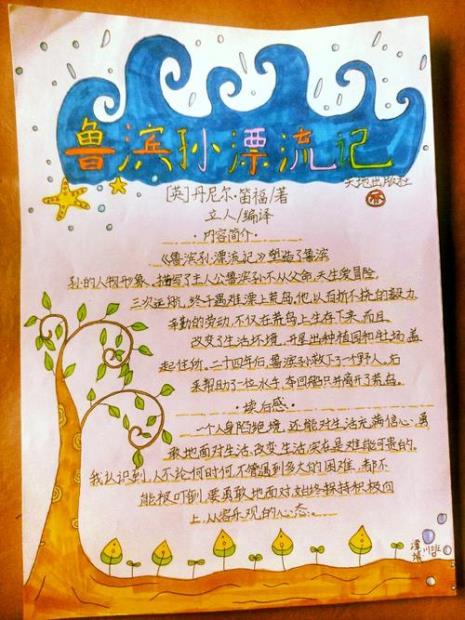 鲁滨孙漂流记
天地出版社
[英]丹尼尔·笛福/著
立人/编译
·内容简介·
《鲁滨孙漂流记》塑造了鲁滨
孙的人物形象、描写了主人公鲁滨孙不从父命,天生爱冒险,
三次还现,终于遇难漂上荒岛,他以百折不挠的毅力,
辛勤的劳动,不仅在荒岛上生存下来,而且
改变了生活环境,开垦出种植园和牧场,盖
起住所。二十四年后,鲁滨孙救下了一个野人。后
来帮助了一位水手,夺回船只并离开了荒岛。
·读后感·
一个人身陷绝境,还能对生活充满信心,勇
敢地面对生活,改变生活,实在是难能可贵的。
我认识到,人不论何时何,不管遇到多大的困难,都不
能被吓倒,要勇敢地面对,始终保持积极向
上,从容乐观的心态。